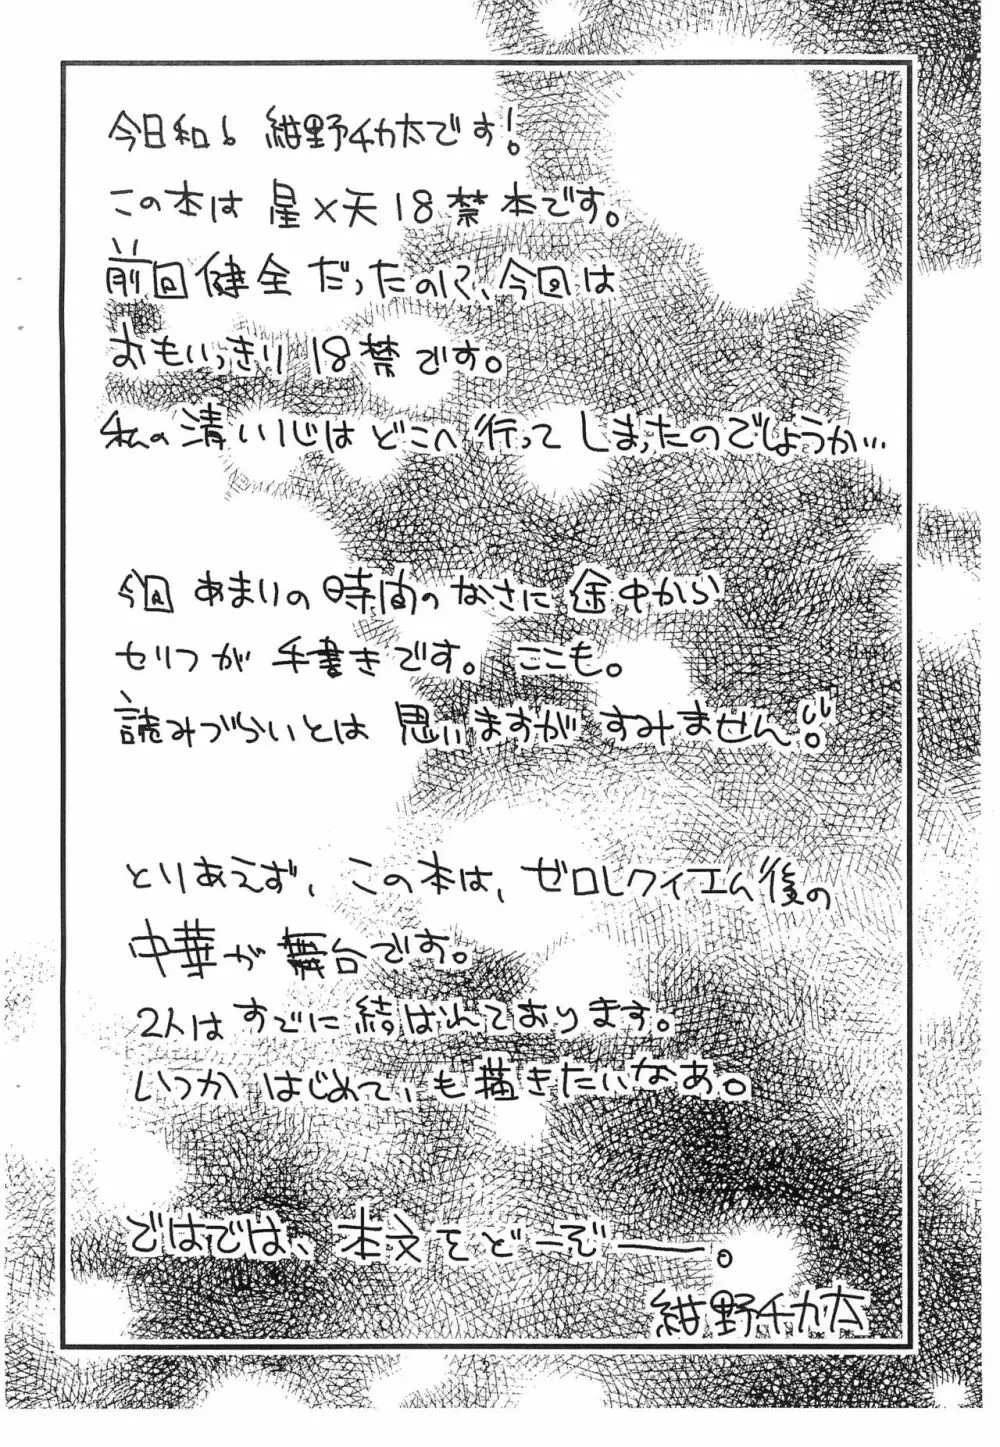 今日和! 紺野千カ太です!
この本は 星×天18禁本です。
前回健全だったのに、今回は
おもいっきり18禁です。
私の清い心はどこへ行ってしまったのでしょうか…
今回あまりの時間のなさに途中から
セリフが手書きです。ここも。
読みづらいとは思いますがすみません!!
とりあえず、この本は、ゼロレクイエム後の
中華が舞台です。
2人はすでに結ばれております。
いつかはじめて、も描きたいなあ。
ではでは、本文をどーぞー。
紺野千カ太